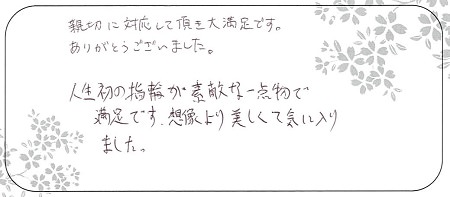 親切に対応して頂き大満足です。
ありがとうございました。
人生初の指輪が素敵な一点物で
満足です、想像より美しくて気に入り
ました。